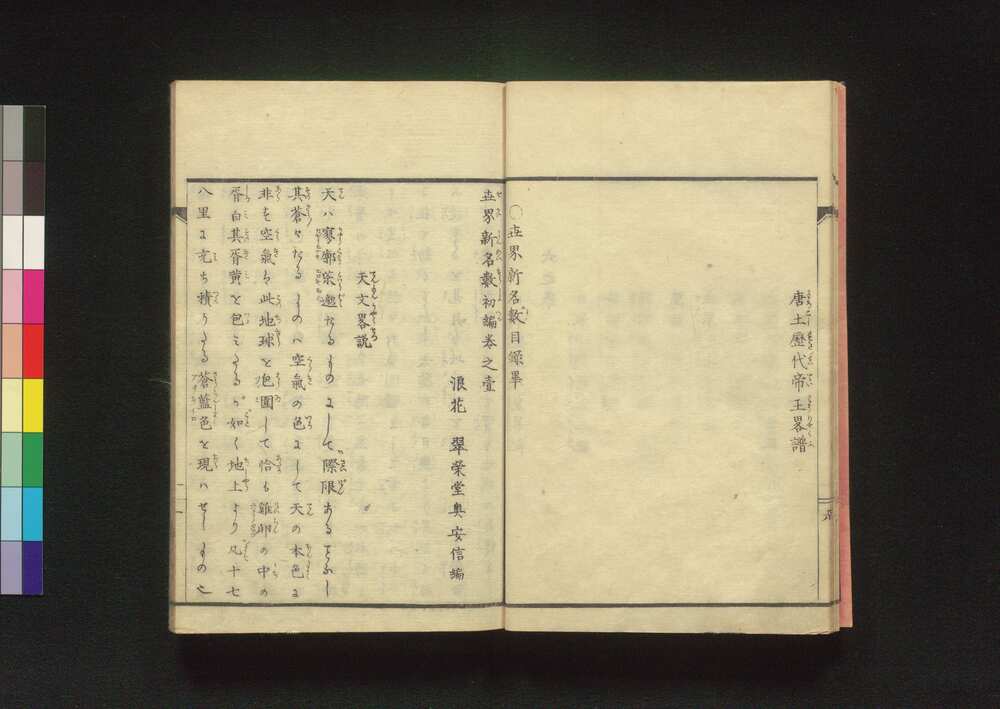 唐土歴代帝王畧譜
〇世界新名數目録畢
世界新名數初編巻之壹
浪花 翠榮堂奥安信編
天文畧説
天ハ寥廓柴遨たるものにして際限あることなし
其蒼々たるものハ空氣の色にして天の本色に
非ず空氣ハ此地球を抱圍して恰も雞卵の中の
胥白其胥黄を包こみたるが如く地上より凡十七
八里に充ち積りたる蒼藍色を現ハせしもの也